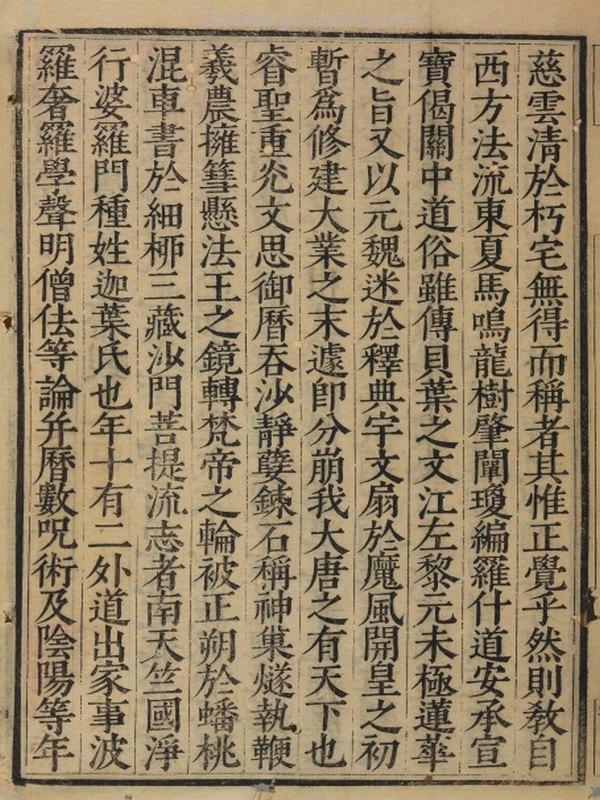 慈雲清於朽宅無得而稱者其惟正覺乎然則教自
西方法流東夏馬鳴龍樹肇闡瓊編羅什道安承宣
寶偈關中道俗雖傳貝葉之文江左黎元未極蓮華
之旨又以元魏迷於釋典宇文扇於魔風開皇之初
暫爲修建大業之末遽即分崩我大唐之有天下也
睿聖重光文思御曆吞沙靜孽鍊石稱神巢燧執鞭
羲農擁篲懸法王之鏡轉梵帝之輪被正朔於蟠桃
混車書於細柳三藏沙門菩提流志者南天竺國淨
行婆羅門種姓迦葉氏也年十有二外道出家事波
羅奢羅學聲明僧佉等論幷曆數呪術及陰陽等年